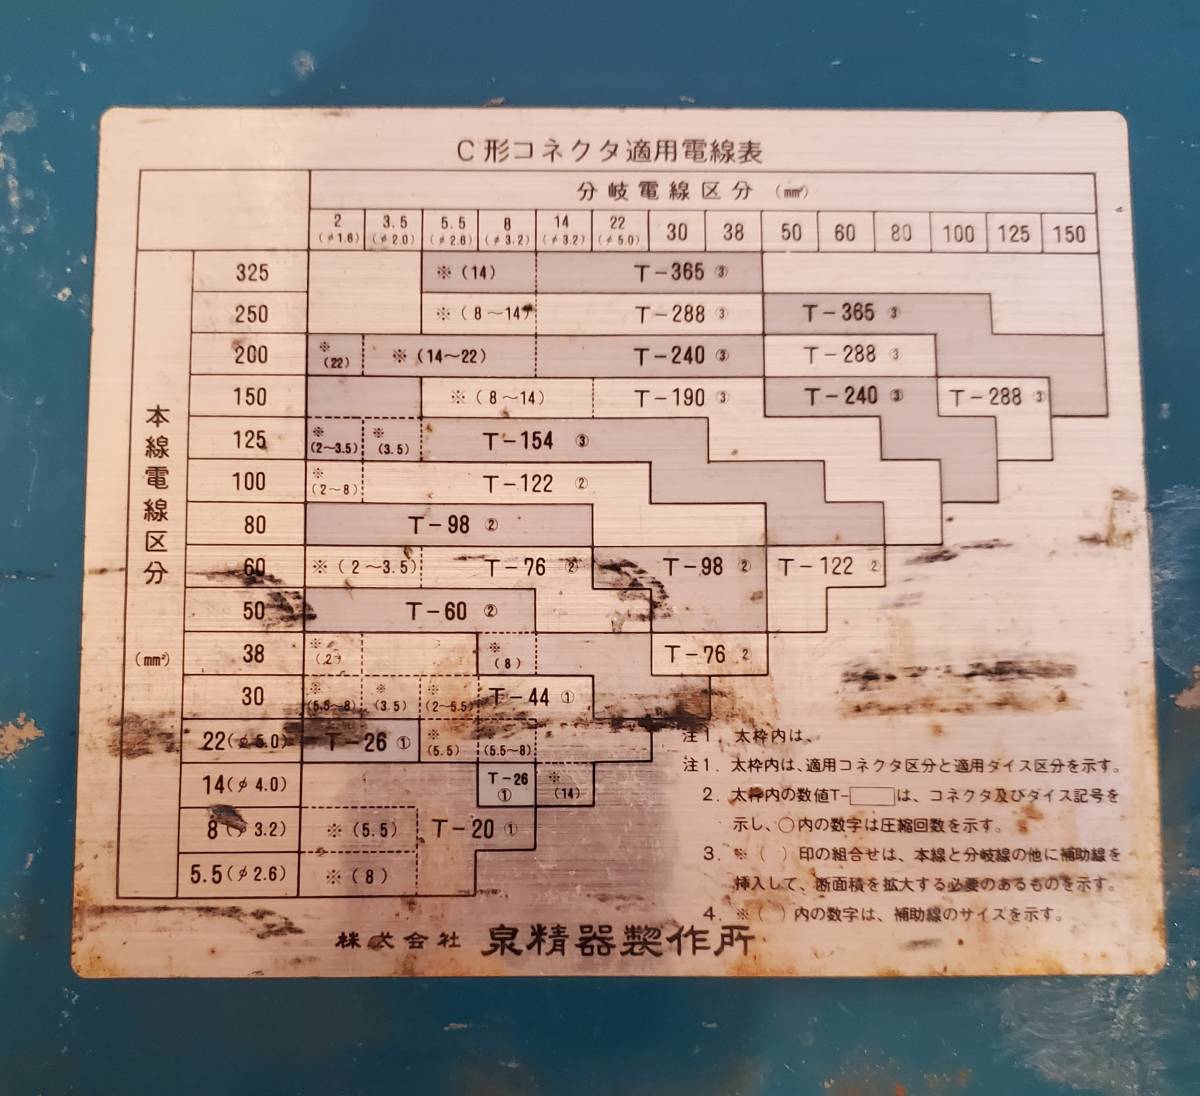 C形コネクタ適用電線表
分岐電線区分 (mm²)
2 3.5 5.5 8 14 22 30 38 50 60 80 100 125 150
(φ1.6) (φ2.0) (φ2.6) (φ3.2) (φ3.2) (φ5.0)
本線電線区分
(mm²)
325 ※(14) T-365 ③
250 ※(8～14) T-288 ③ T-365 ③
200 ※(22) ※(14～22) T-240 ③ T-288 ③
150 ※(8～14) T-190 ③ T-240 ③ T-288 ③
125 ※(2～3.5) ※(3.5) T-154 ③
100 ※(2～8) T-122 ②
80 T-98 ②
60 ※(2～3.5) T-76 ② T-98 ② T-122 ②
50 T-60 ②
38 ※(2) ※(8) T-76 ②
30 ※(5.5～8) ※(3.5) ※(2～5.5) T-44 ①
22(φ5.0) T-26 ① ※(5.5) ※(5.5～8)
14(φ4.0) T-26 ① ※(14)
8(φ3.2) ※(5.5) T-20 ①
5.5(φ2.6) ※(8)
注1. 太枠内は、
注1. 太枠内は、適用コネクタ区分と適用ダイス区分を示す。
2. 太枠内の数値T-□は、コネクタ及びダイス記号を
示し、○内の数字は圧縮回数を示す。
3. ※( )印の組合せは、本線と分岐線の他に補助線を
挿入して、断面積を拡大する必要のあるものを示す。
4. ※( )内の数字は、補助線のサイズを示す。
株式会社 泉精器製作所